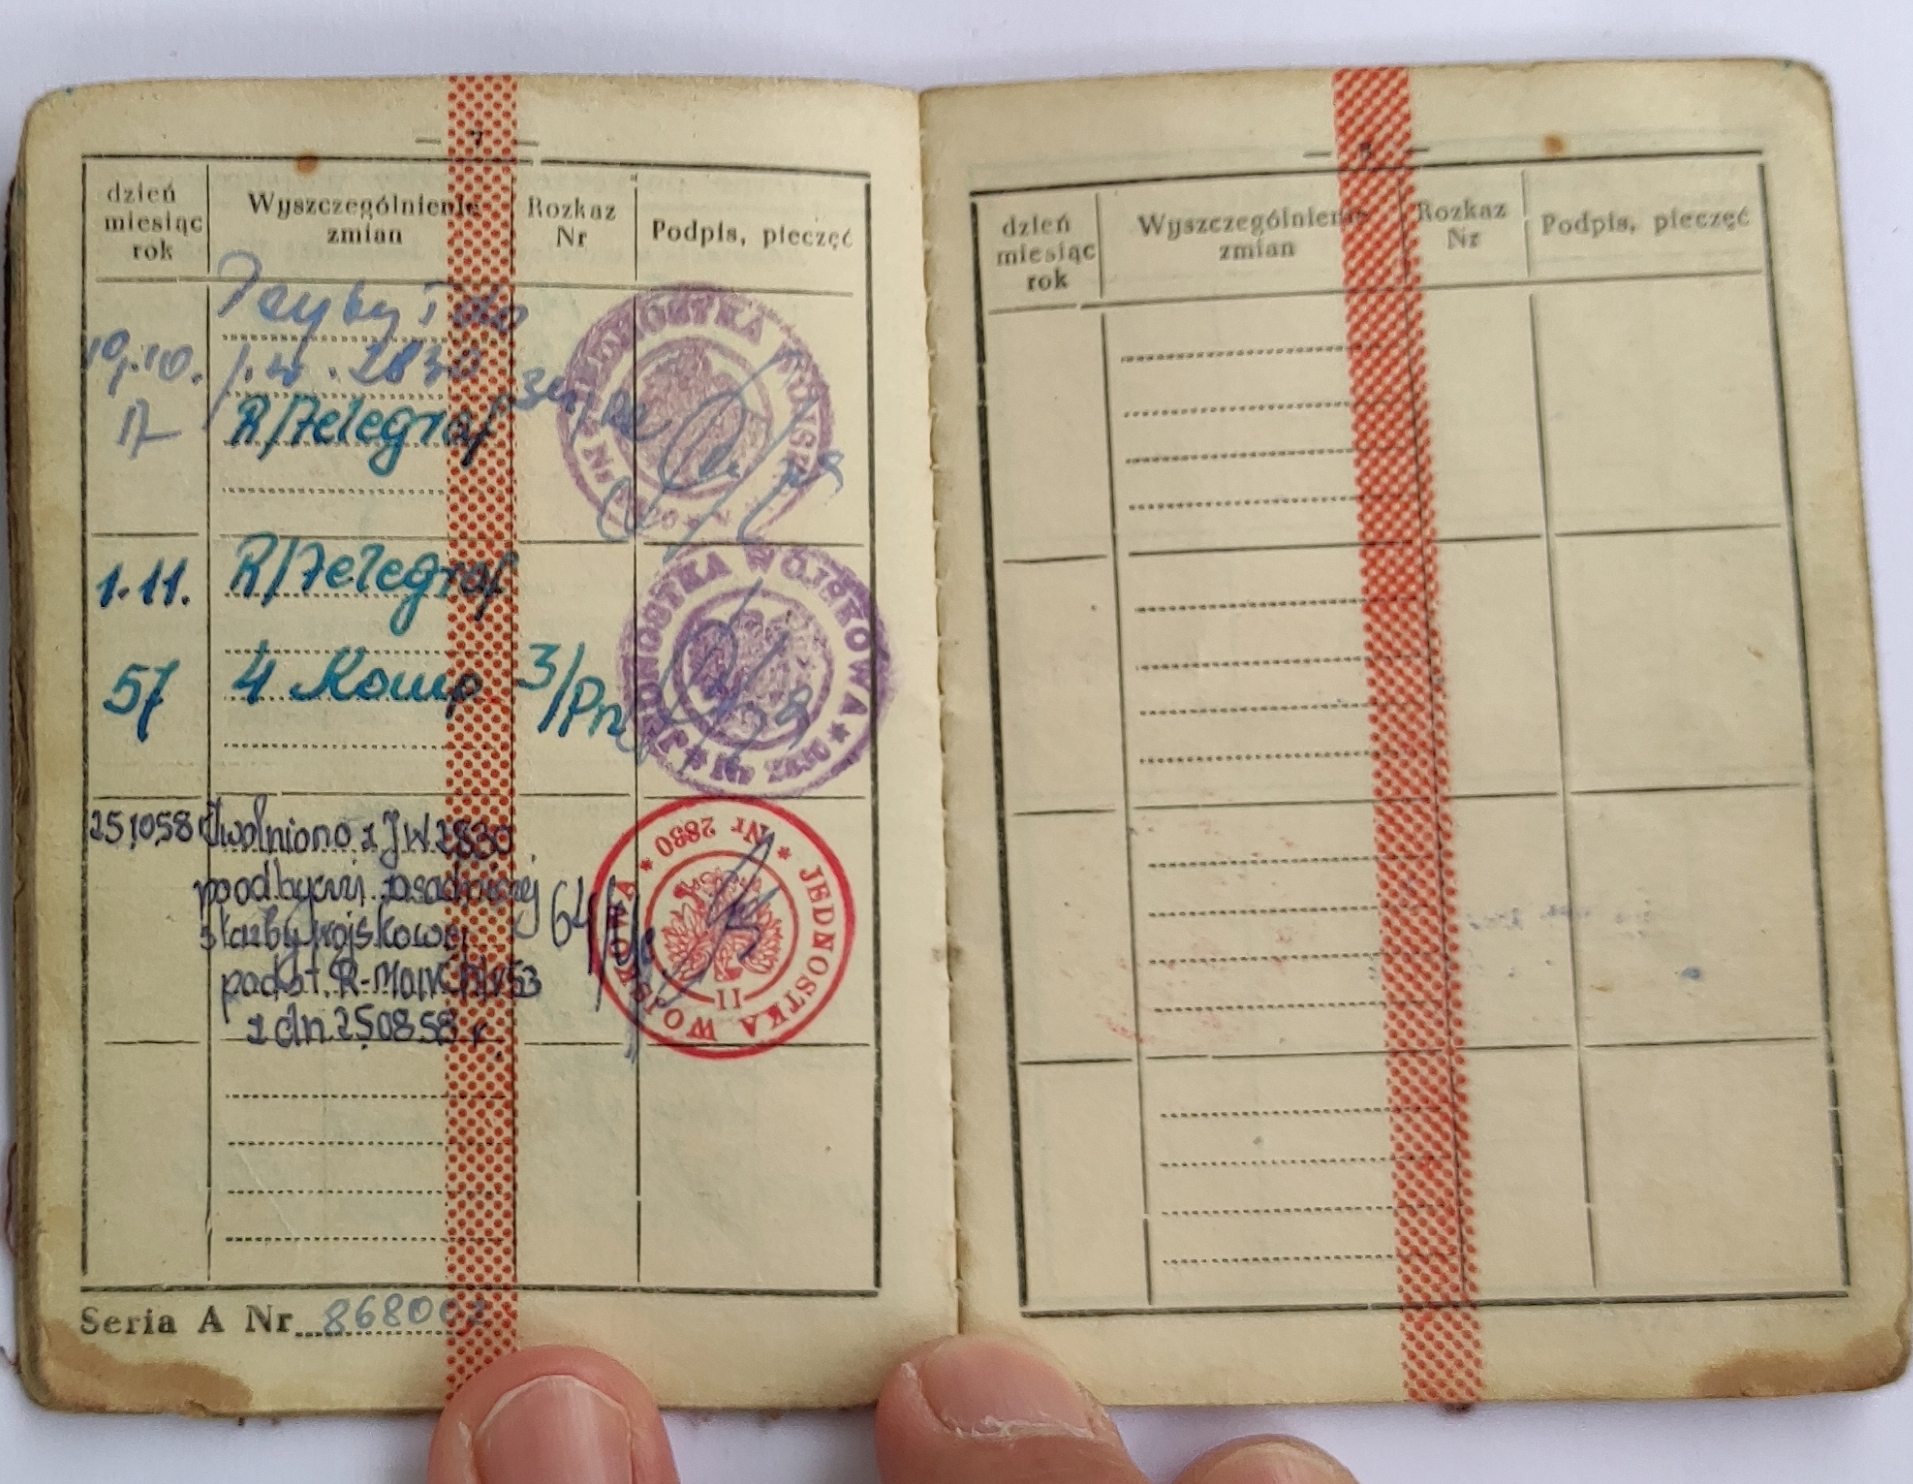 — 7 —
dzień miesiąc rok
Wyszczególnienie zmian
Rozkaz Nr
Podpis, pieczęć
19.10.
Przybył do
j.w. 2830
R/Telegraf
JEDNOSTKA WOJSKOWA
1.11.
57
R/Telegraf
4 Komp
3/Pn
JEDNOSTKA WOJSKOWA * Nr 2830 *
25.10.58
Zwolniono z JW 2830
po odbyciu zasadniczej
służby wojskowej
podst. R-
z dn. 25.08.58 r.
64/
JEDNOSTKA WOJSKOWA * Nr 2830 *
II
Seria A Nr 86800
— 8 —
dzień miesiąc rok
Wyszczególnienie zmian
Rozkaz Nr
Podpis, pieczęć